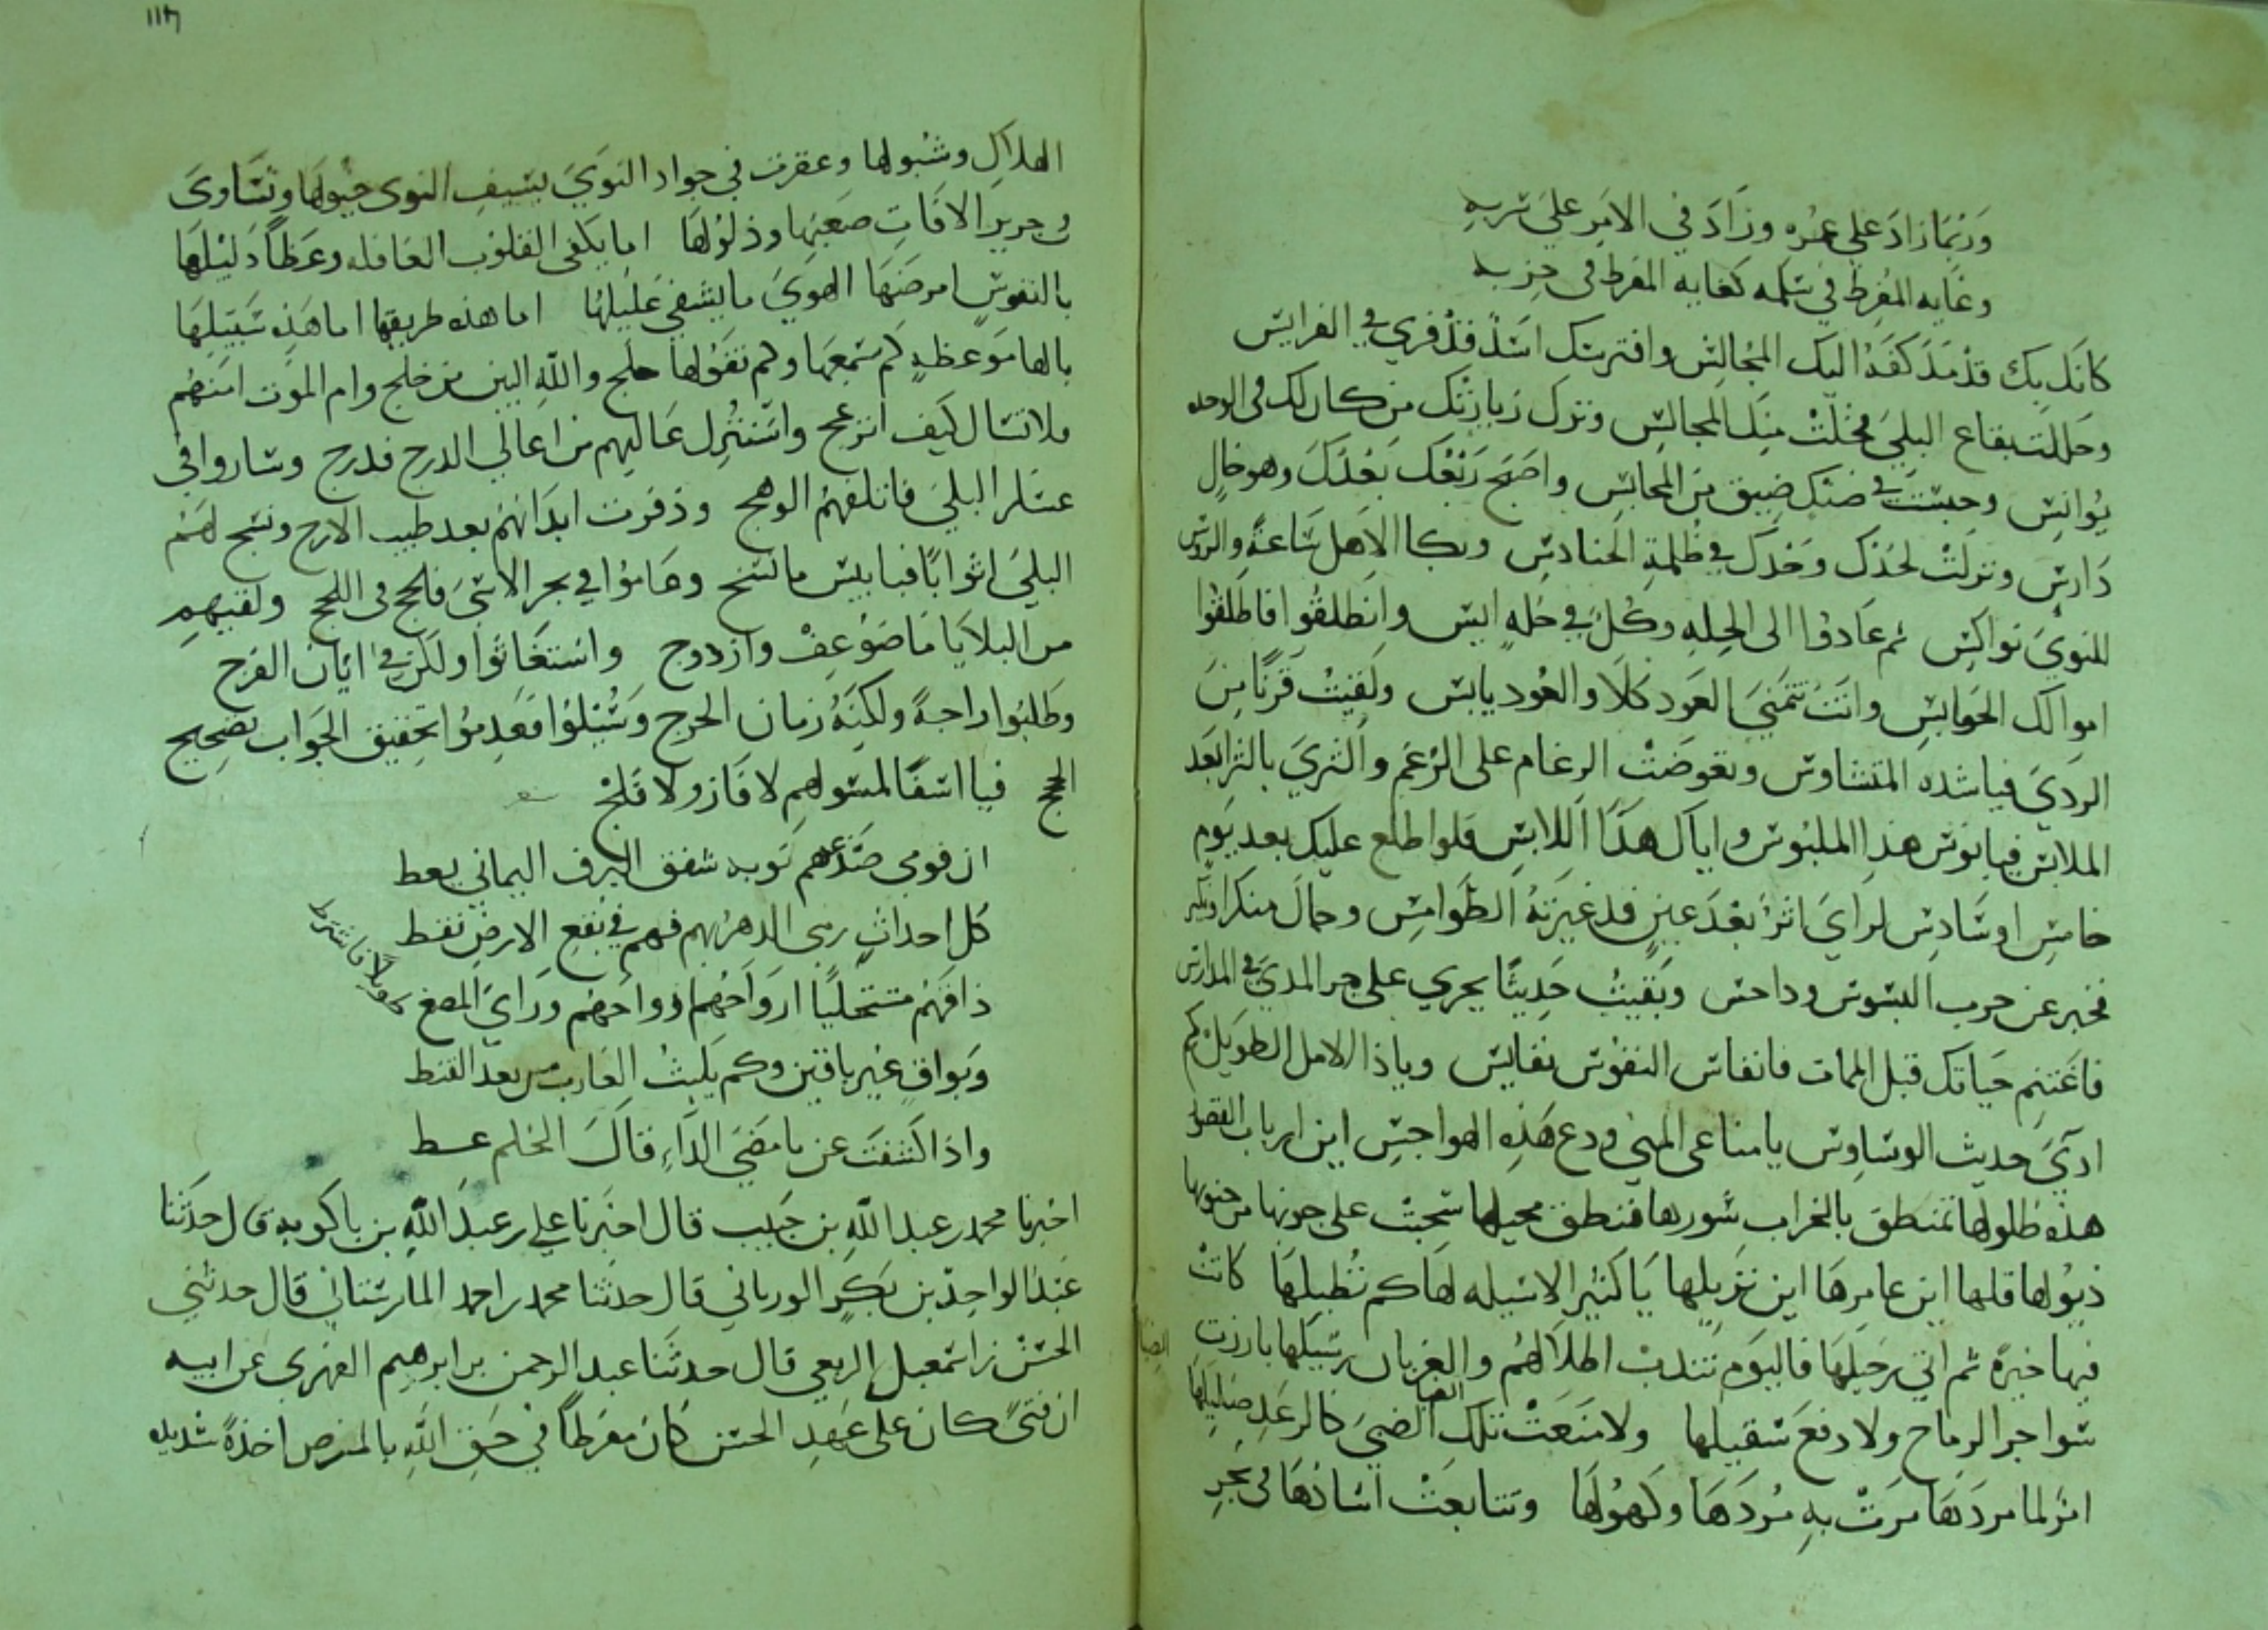 وربما زاد على عمره وزاد في الامر على سربه
وغاية المفرط في سلمه كغاية المفرط في حربه
كانك بك قد مد كفه اليك المخالس وافترسك اسد قد فري في الفرايس
وحللت بقاع البلي فخلت منك المجالس وترك زيارتك من كان لك في الوحده
يوانس وحبست في ضنك ضيق من المحابس واصبح ربعك بعدك وهو خال
دارس ونزلت لحدك وحدك في ظلمة الحنادس وبكا الاهل ساعة والروس
للنوي نواكس ثم عادوا الى الحيله وكل في حلة ايس وانطلقوا فاطلقوا
اموالك الحبايس وانت تتمني العود كلا والعود يابس ولقيت قرنا من
الردي فيا شده المتشاوس وتعوضت الرغام على الرغم والثري بالثرا بعد
الملابس فيا بوس هذا الملبوس واياك هذا اللابس فلو اطلع عليك بعد يوم
خامس او سادس لراي اثرا بعد عين قد غيرته الطوامس وحال منكرا ونكير
فخبر عن حرب البسوس وداحس وبقيت حديثا يجري على مر المدي في المدارس
فاغتنم حياتك قبل الممات فانفاس النفوس نفايس ويا ذا الامل الطويل كم
اذي حديث الوساوس يا مناعى المني ودع هذه الهواجس اين ارباب القصور
هذه طلولها تمنطق بالخراب سورها فنطق محيلها سحبت على جوبها من جنوبها
ذيولها قلها اين عامرها اين نزيلها يا كثير الاسيله لها كم تطيلها كانت
فيها خيرة ثم اتي رحيلها فاليوم تندب اطلالهم والغربان رسيلها بارزت
شواجر الرماح ولا دفع سقيلها ولا منعت تلك الضبي كالرعد صليلها
انزلما مردتها مرت به مردها وكهولها وتتابعت اسادها في بحر
١١٣
الهلاك وشبولها وعقرت في جواد النوي بسيف النوى خيولها وتساوى
في جرير الافات صعبها وذلولها اما يكفي القلوب الغافله وعظا دليلها
بالنفوس امرضها الهوي ما يشفي غليلها اما هذه طريقها اما هذه سبيلها
يالها موعظة لم تسمعها ولم نقولها حلج والله البين من خلج وام الموت امنهم
فلا تسال كيف انزعج واستنزل عاليهم من اعالي الدرج فدرج وساروا في
عسكر البلي فاتلفهم الوهج وذفرت ابدانهم بعد طيب الارج ونسج لهم
البلي اثوابا فيا بيس ما نسج وهاموا في بحر الاسى فلجج في اللجج ولقيهم
من البلايا ما ضوعف وازدوج واستغاثوا ولكن في ايان الفرج
وطلبوا راحة ولكنه زمان الحرج وسيلوا فعدموا تحقيق الجواب بصحيح
الحجج فيا اسفا لمسولهم لا فاز ولا فلج
ان قومي صدعهم نوبه شفق البرق اليماني يعط
كل احداث رمى الدهر بهم فهم في نقع الارض نقط
ذاقهم مستحليا ارواحهم ازواحهم وراي المصغ كهولا فاشترط
وبواق غير باقين وكم يلبث الغارب من بعد القنط
واذا كشفت عن ما مضى الداء قال الحلم عسط
اخبرنا محمد بن عبد الله بن حبيب قال اخبرنا علي بن عبد الله بن باكويه قال حدثنا
عبد الواحد بن بكر الورباني قال حدثنا محمد بن احمد المارستاني قال حدثني
الحسن بن اسمعيل الربعي قال حدثنا عبد الرحمن بن ابرهيم الفهري عن ابيه
ان فتى كان على عهد الحسن كان مفرطا في حق الله بالمرض اخذة شديده